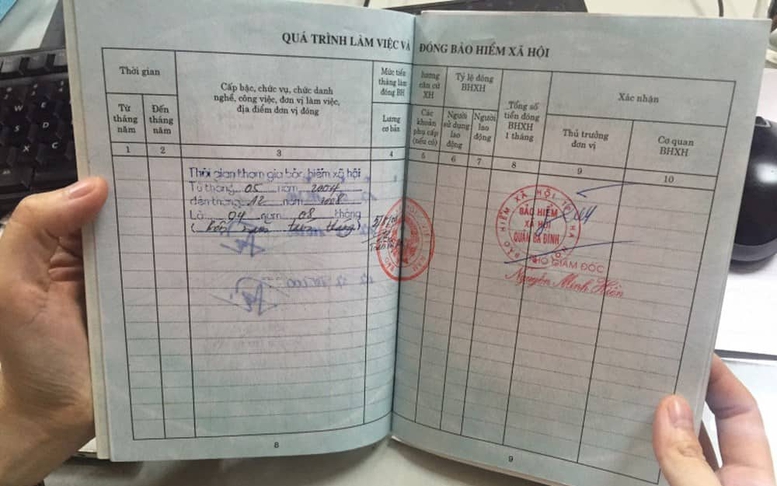 QUÁ TRÌNH LÀM VIỆC VÀ ĐÓNG BẢO HIỂM XÃ HỘI
Thời gian
Từ tháng năm
Đến tháng năm
Cấp bậc, chức vụ, chức danh
nghề, công việc, đơn vị làm việc,
địa điểm đơn vị đóng
Mức tiền
tháng làm
đóng BH
Lương
cơ bản
lương
căn cứ
XH
Các
khoản
phụ cấp
(nếu có)
Tỷ lệ đóng
BHXH
Người
sử dụng
lao
động
Người
lao
động
Tổng số
tiền đóng
BHXH
1 tháng
Xác nhận
Thủ trưởng
đơn vị
Cơ quan
BHXH
1 2 3 4 5 6 7 8 9 10
Thời gian tham gia bảo hiểm xã hội
Từ tháng 05 năm 2004
đến tháng 12 năm 2008
Là 04 năm 08 tháng
(bốn năm tám tháng)
BẢO HIỂM XÃ HỘI TP HÀ NỘI
BẢO HIỂM
XÃ HỘI
QUẬN BA ĐÌNH
PHÓ GIÁM ĐỐC
Nguyễn Minh Hiền
8
9